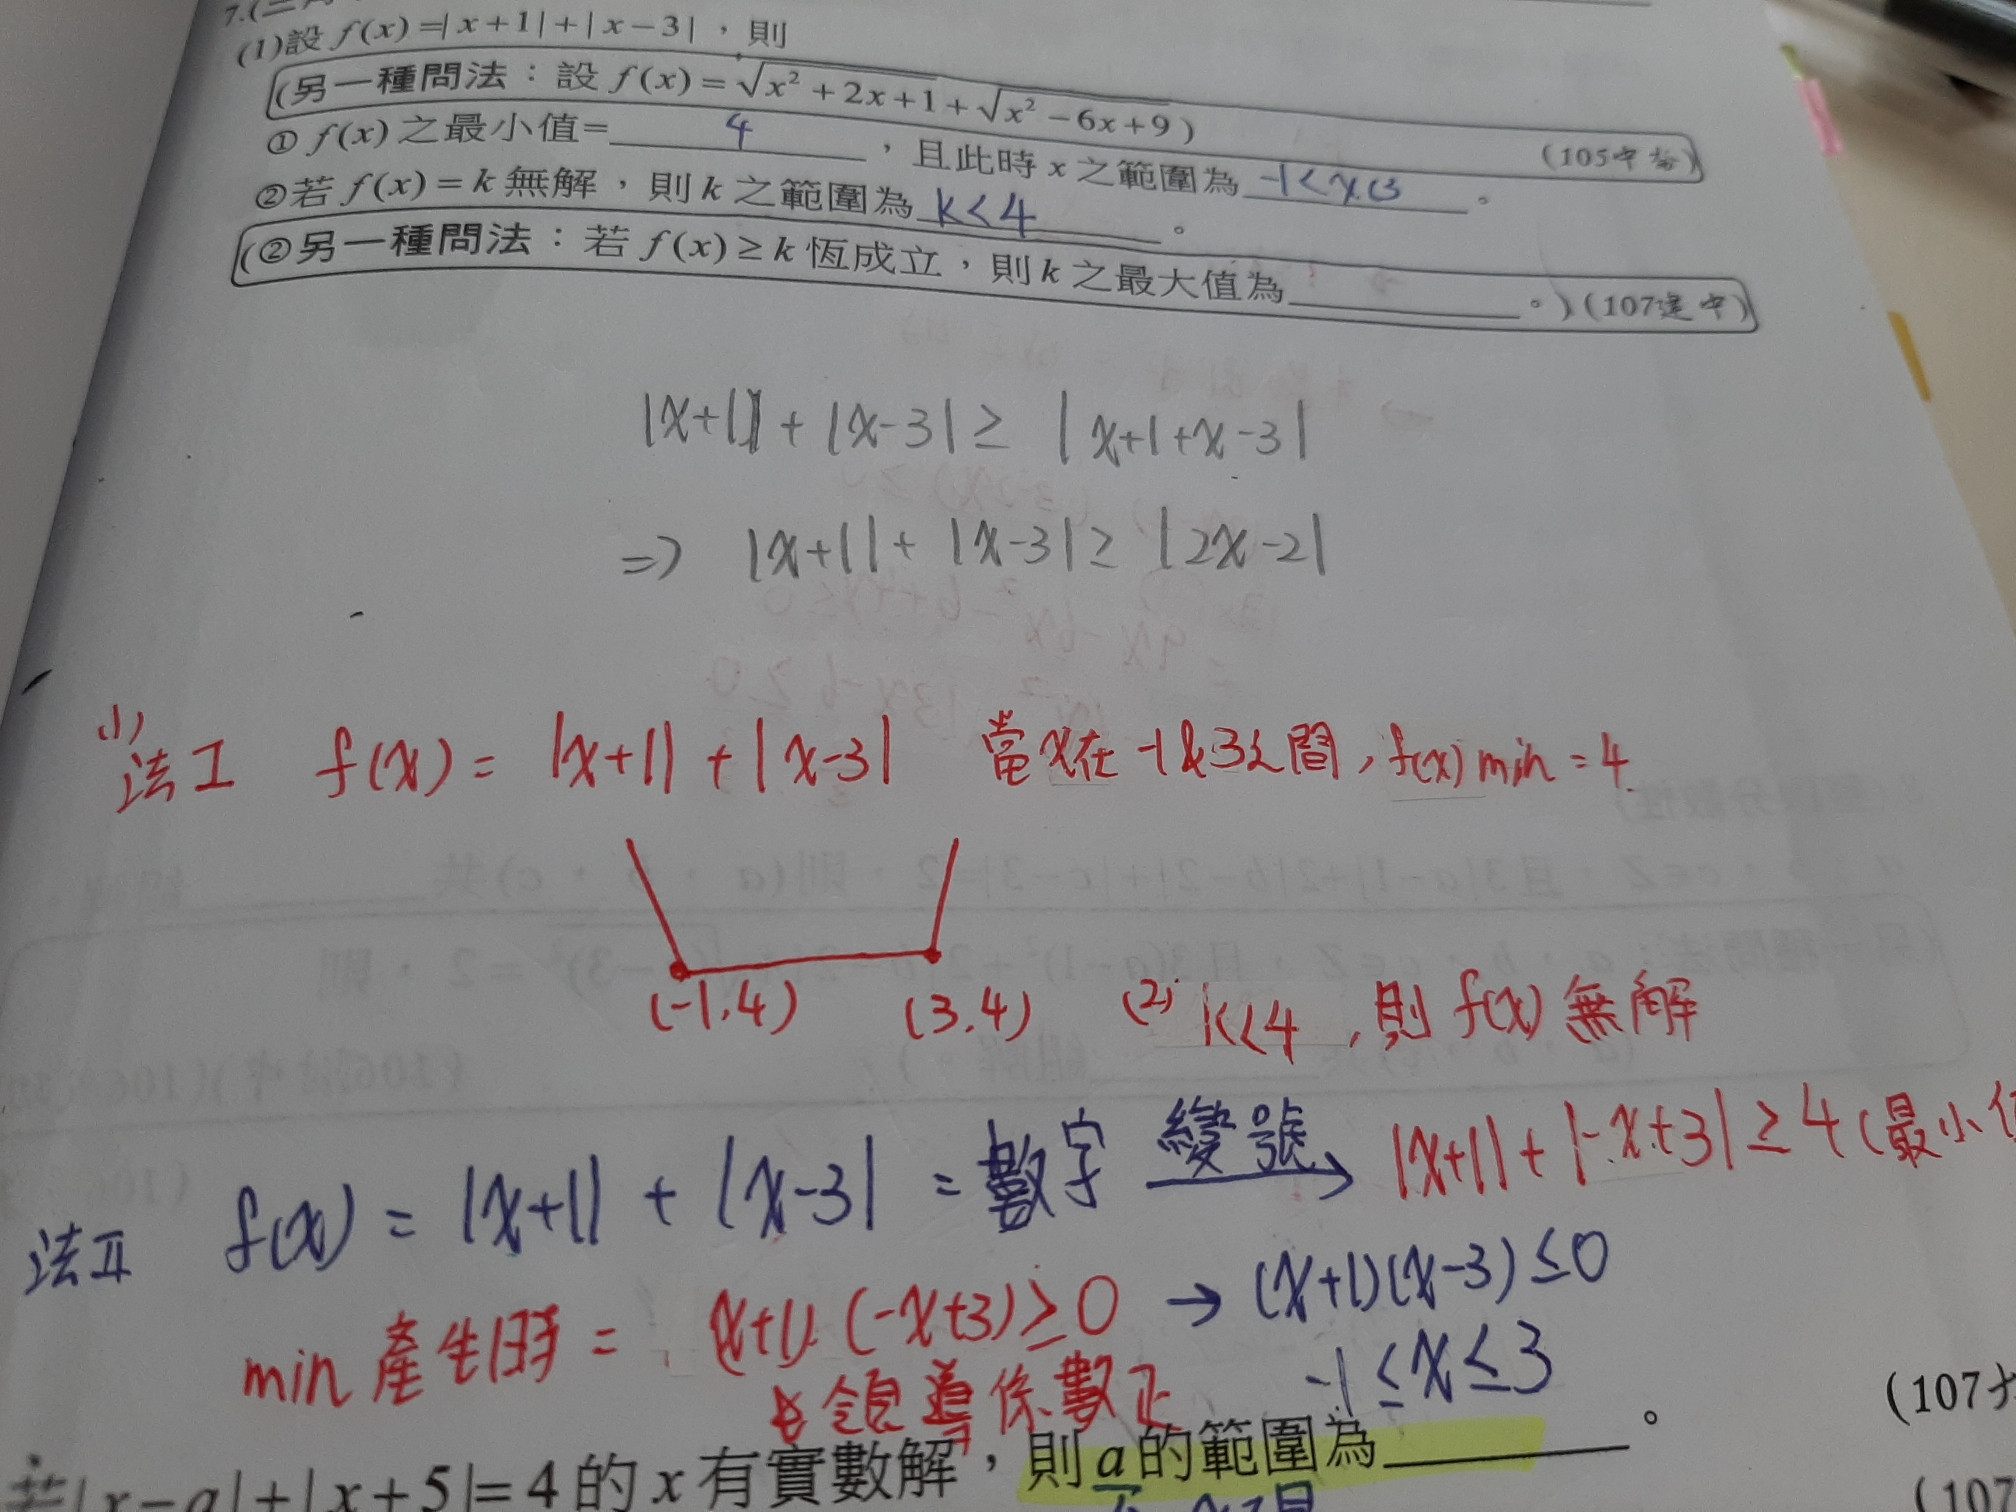 7.(三
(1)設 f(x)=|x+1|+|x−3|，則
(另一種問法：設 f(x)=√(x²+2x+1)+√(x²−6x+9))
(105中
① f(x) 之最小值= 4 ，且此時 x 之範圍為 -1<x<3 。
②若 f(x)=k 無解，則 k 之範圍為 k<4 。
(②另一種問法：若 f(x)≥k 恆成立，則 k 之最大值為______。)(107建中)
|x+1|+|x-3|≥ |x+1+x-3|
=> |x+1|+|x-3|≥ |2x-2|
(1)
法I f(x)= |x+1|+|x-3| 當x在-1&3之間，f(x) min=4
(-1,4) (3,4) (2) k<4，則 f(x) 無解
法II f(x)= |x+1| + |x-3| = 數字 變號→ |x+1|+|-x+3|≥4(最小
min 產生時= (x+1)(-x+3)≥0 → (x+1)(x-3)≤0
領導係數正 -1≤x≤3
(107
若|x−a|+|x+5|=4 的 x 有實數解，則 a 的範圍為______。
(107